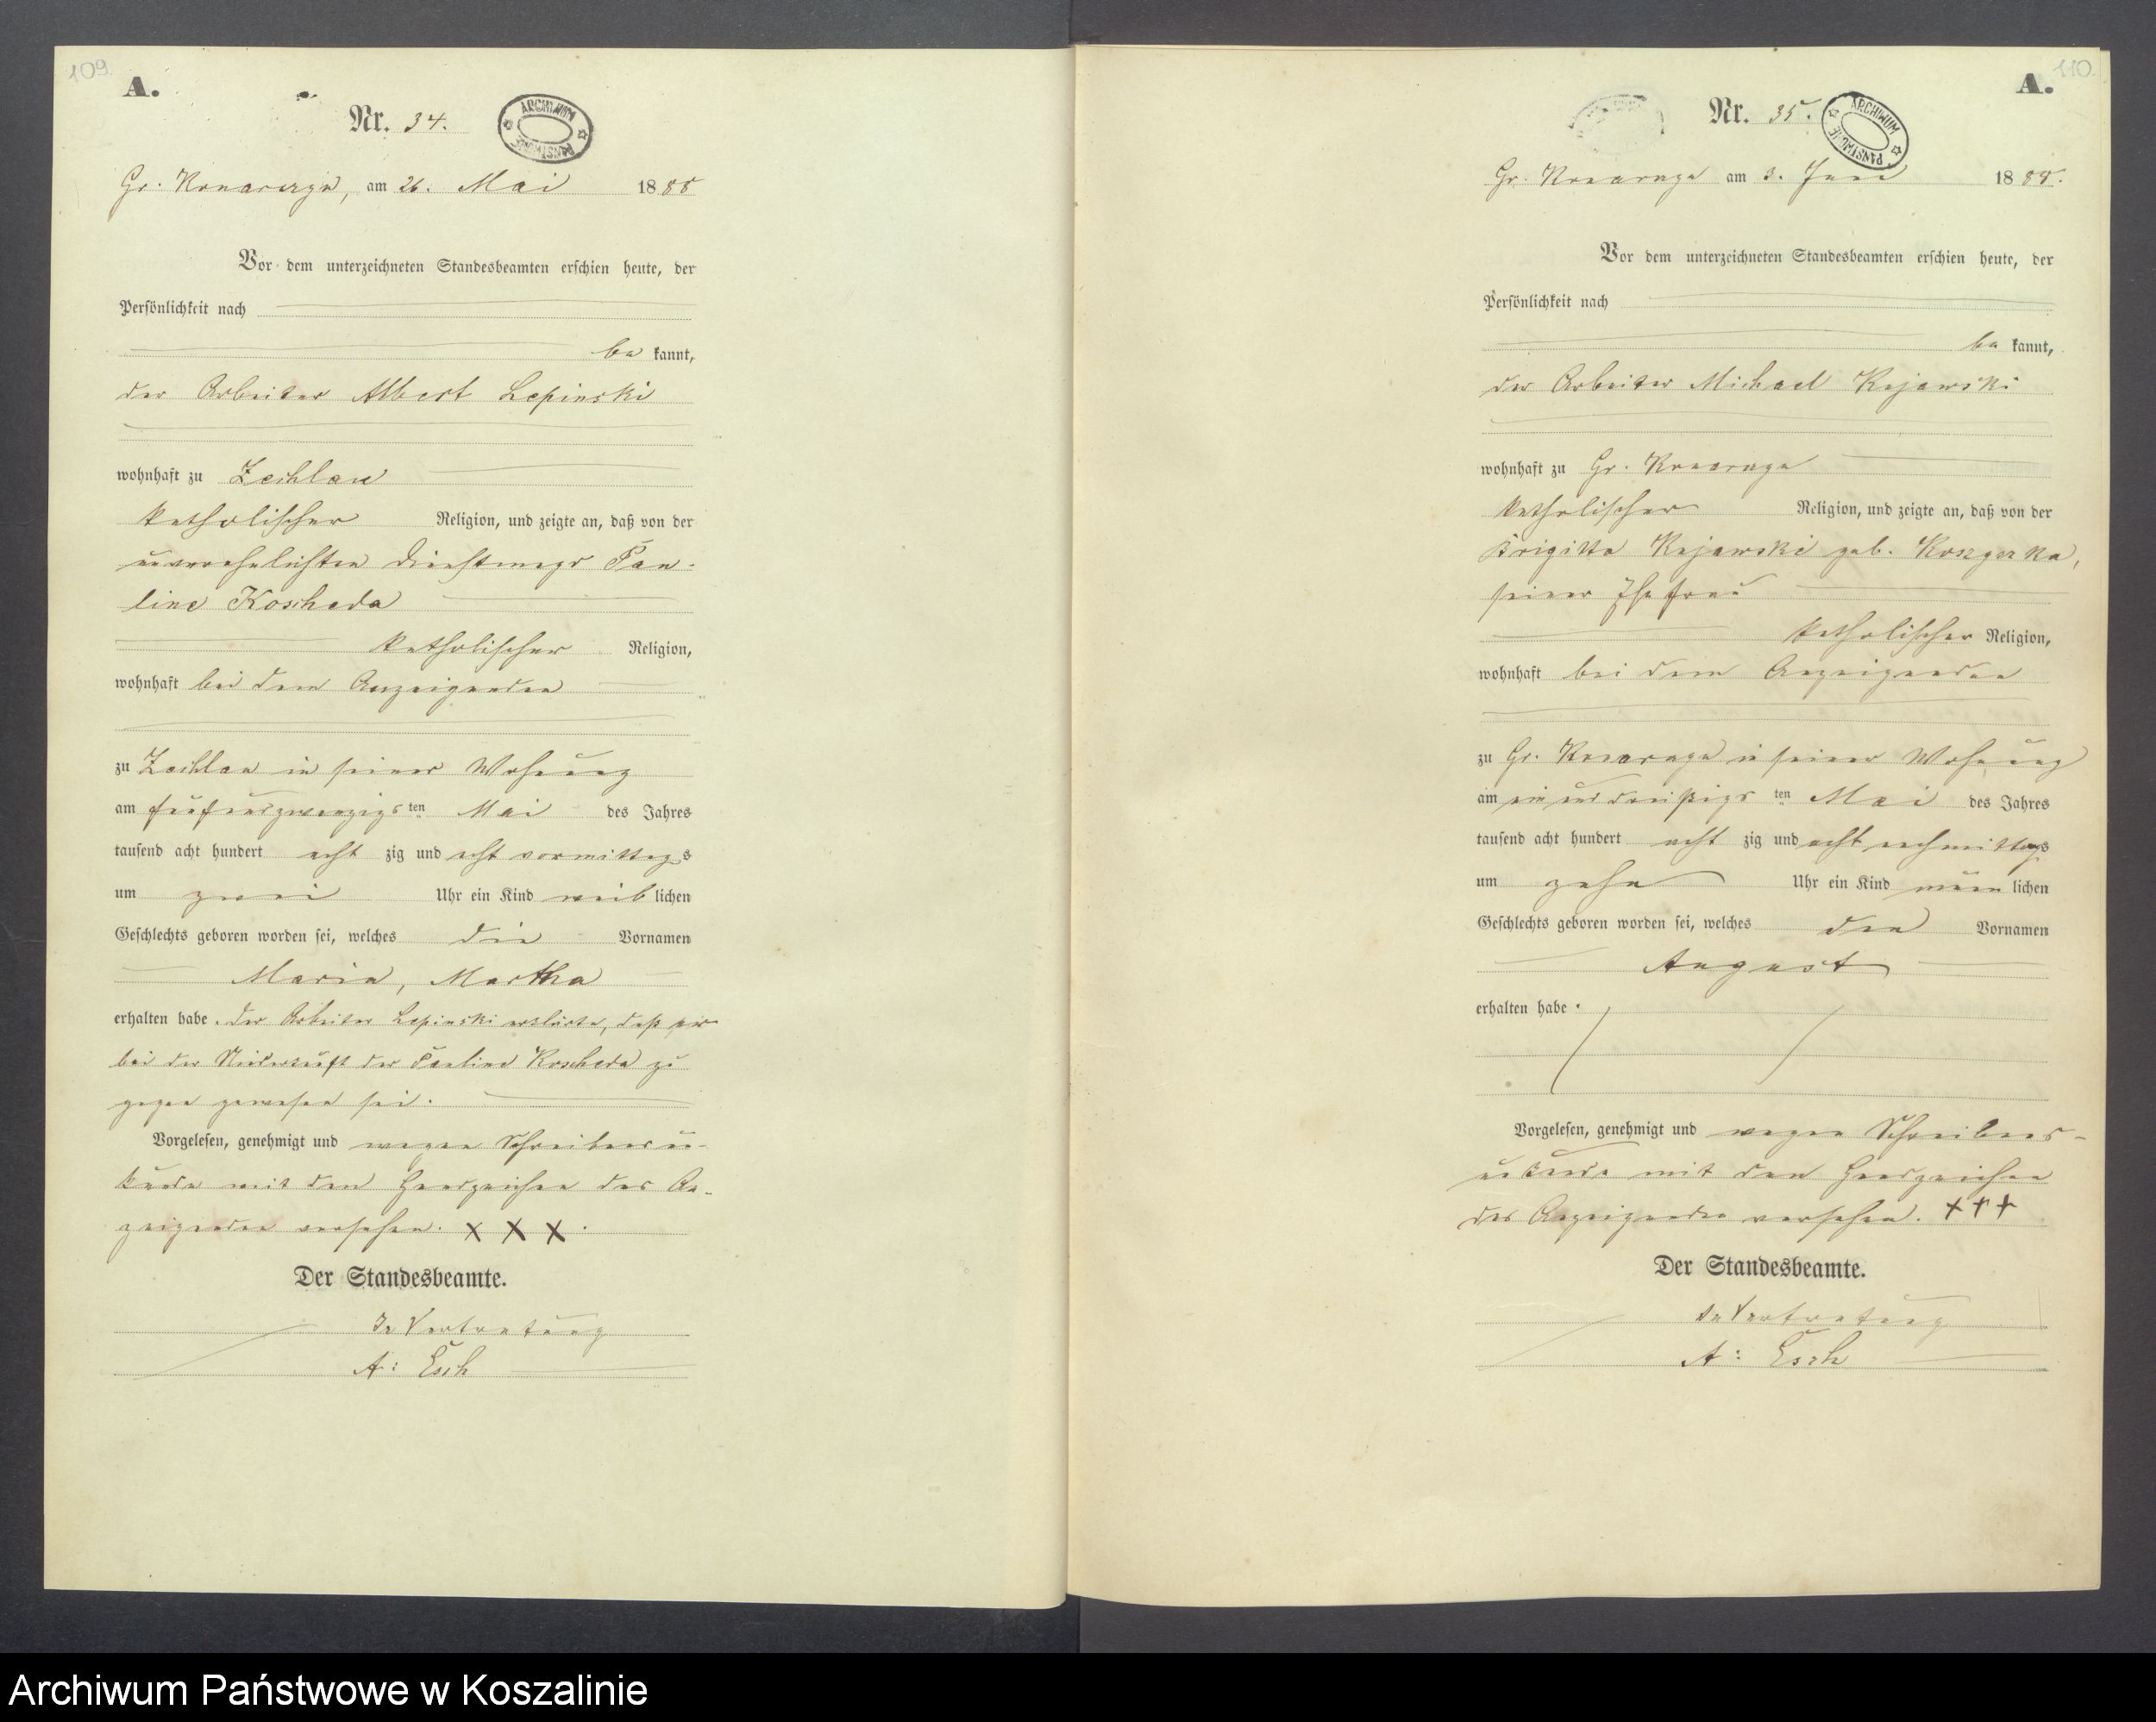 109
A.
Nr. 34.
ARCHIWUM PAŃSTWOWE
Gr. Konarczyn, am 26. Mai 1888
Vor dem unterzeichneten Standesbeamten erschien heute, der
Persönlichkeit nach
be kannt,
der Arbeiter Albert Lepinski
wohnhaft zu Zechlau
katholischer Religion, und zeigte an, daß von der
unverehelichten Dienstmagd Pau-
line Koscheda
katholischer Religion,
wohnhaft bei dem Anzeigenden
zu Zechlau in seiner Wohnung
am fünfundzwanzigs ten Mai des Jahres
tausend acht hundert acht zig und acht vormittags
um zwei Uhr ein Kind weib lichen
Geschlechts geboren worden sei, welches die Vornamen
Maria, Martha
erhalten habe. Der Arbeiter Lepinski erklärte, daß er
bei der Niederkunft der Pauline Koscheda zu
gegen gewesen sei.
Vorgelesen, genehmigt und wegen Schreibensun-
kunde mit dem Handzeichen des An-
zeigenden versehen. X X X.
Der Standesbeamte.
In Vertretung
A: Esch
110.
A.
Nr. 35.
ARCHIWUM PAŃSTWOWE
Gr. am 3. Juni 1888.
Vor dem unterzeichneten Standesbeamten erschien heute, der
Persönlichkeit nach
be kannt,
der Arbeiter Michael Kujawski
wohnhaft zu Gr.
katholischer Religion, und zeigte an, daß von der
Brigitta Kujawski geb.
seiner Ehefrau
katholischer Religion,
wohnhaft bei dem Anzeigenden
zu Gr. in seiner Wohnung
am einunddreißigs ten Mai des Jahres
tausend acht hundert acht zig und acht nachmittags
um zehn Uhr ein Kind männ lichen
Geschlechts geboren worden sei, welches den Vornamen
August
erhalten habe.
Vorgelesen, genehmigt und wegen Schreibens-
unkunde mit dem Handzeichen
des Anzeigenden versehen. +++
Der Standesbeamte.
In Vertretung
A: Esch
Archiwum Państwowe w Koszalinie